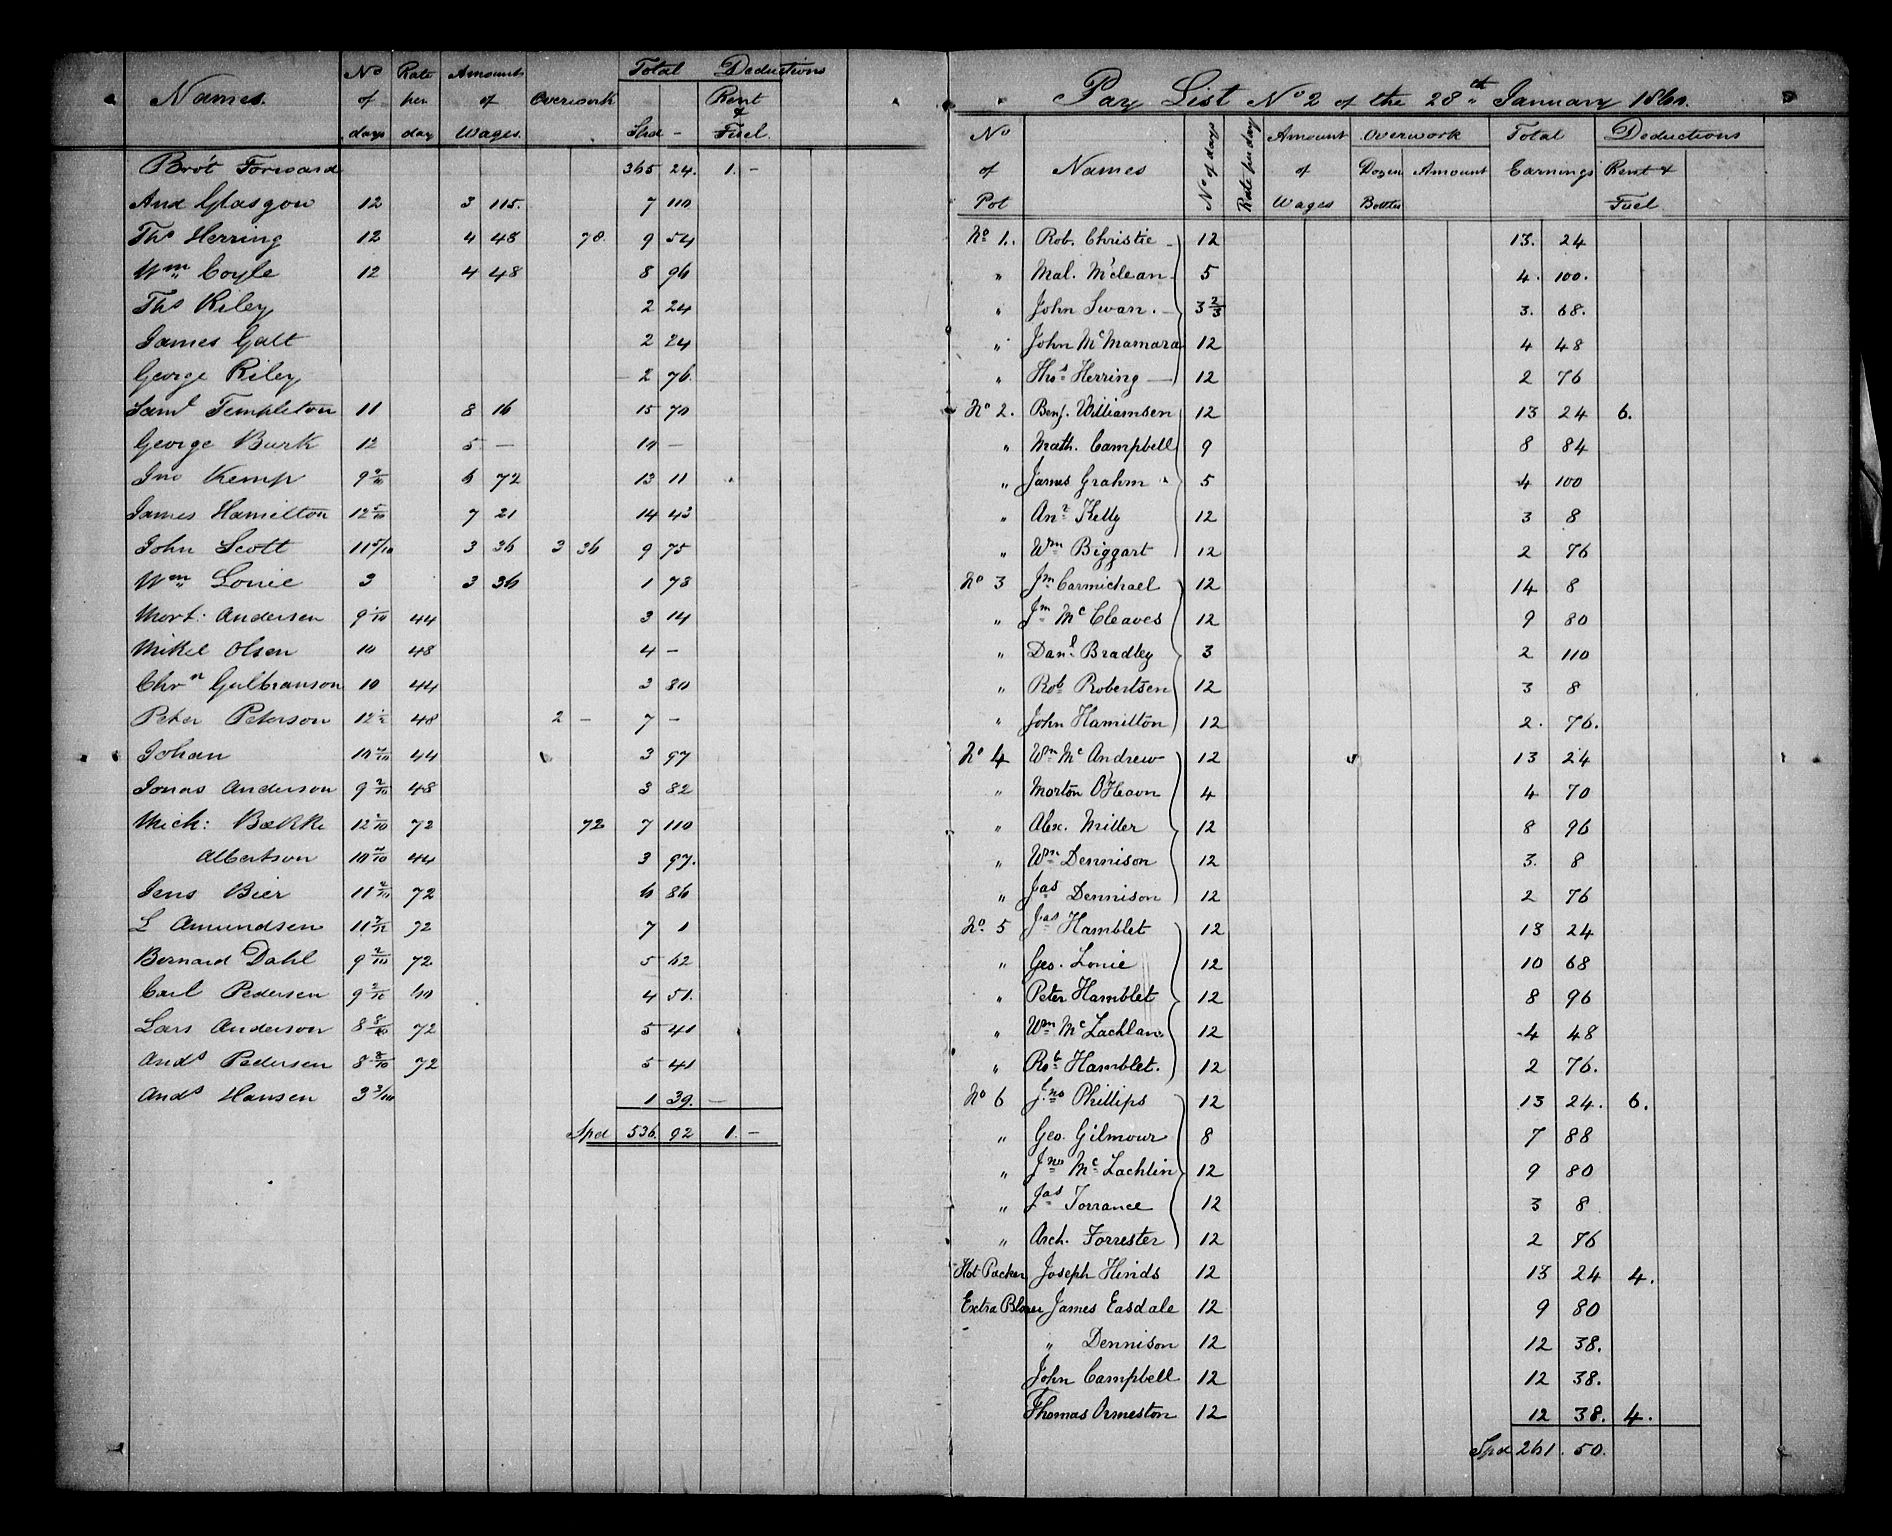 Names. No of days Rate per day Amount of Wages. Overwork Total Spd - Deductions Rent & Fuel.
Bro't Forward 365 24. 1. -
And Glasgow 12 3 115. 7 110
Thos Herring 12 4 48 78. 9 54
Wm Coyle 12 4 48 8 96
Thos Riley 2 24
James Galt 2 24
George Riley 2 76.
Saml Templeton 11 8 16 15 70
George Burk 12 5 - 10 -
Jno Kemp 9 2/10 6 72 13 11
James Hamilton 12 5/10 7 21 14 43
John Scott 11 5/10 3 36 3 36 9 75
Wm Lonie 3 3 36 1 78
Mort: Andersen 9 1/10 44 3 14
Mikel Olsen 10 48 4 -
Chrn Gulbranson 10 44 3 80
Peter Peterson 12 1/2 48 2 - 7 -
Johan 10 2/10 44 3 97
Jonas Anderson 9 2/10 48 3 82
Mick: Bække 12 2/10 72 72 7 110
Albertson 10 2/10 44 3 97.
Jens Bier 11 2/10 72 6 86
L Amundsen 11 2/12 72 7 1
Bernard Dahl 9 2/10 72 5 62
Carl Pedersen 9 2/10 60 4 51.
Lars Anderson 8 8/10 72 5 41
Ands Pedersen 8 8/10 72 5 41
Ands Hansen 3 3/10 1 39. -
Spd 536. 92 1. -
Pay List No 2 of the 28th January 1860.
No of Pot Names No of days Rate per day Amount of Wages Overwork Dozen Bottles Amount Total Earnings Deductions Rent & Fuel
No 1. Rob. Christie 12 13. 24
" Mal. McLean 5 4. 100.
" John Swan. 3 2/3 3. 68.
" John McMamara 12 4 48
" Thos Herring 12 2 76
No 2. Benj. Williamsen 12 13 24 6.
" Math. Campbell 9 8 84
" James Grahm 5 4 100
" Anr Kelly 12 3 8
" Wm Biggart 12 2 76
No 3 Jm Carmichael 12 14. 8
" Jm McCleaves 12 9 80
" Danl Bradley 3 2 110
" Rob Robertsen 12 3 8
" John Hamilton 12 2. 76.
No 4 Wm McAndrew 12 13 24
" Morton O'Heavn 4 4 70
" Alex. Miller 12 8 96
" Wm Dennison 12 3. 8
" Jas Dennison 12 2 76
No. 5 Jas Hamblet 12 13 24
" Geo. Lonie 12 10 68
" Peter Hamblet 12 8 96
" Wm McLachlan 12 4 48
" Rot Hamblet. 12 2 76.
No 6 Jno Phillips 12 13 24. 6.
" Geo. Gilmour 8 7 88
" Jno McLachlin 12 9 80
" Jas Torrance 12 3 8
" Arch. Forrester 12 2 76
Hot Packer Joseph Hinds 12 13 24 4.
Extra Blower James Easdale 12 9 80
" Dennison 12 12 38.
John Campbell 12 12 38.
Thomas Ormeston 12 12 38. 4.
Spd 261. 50.